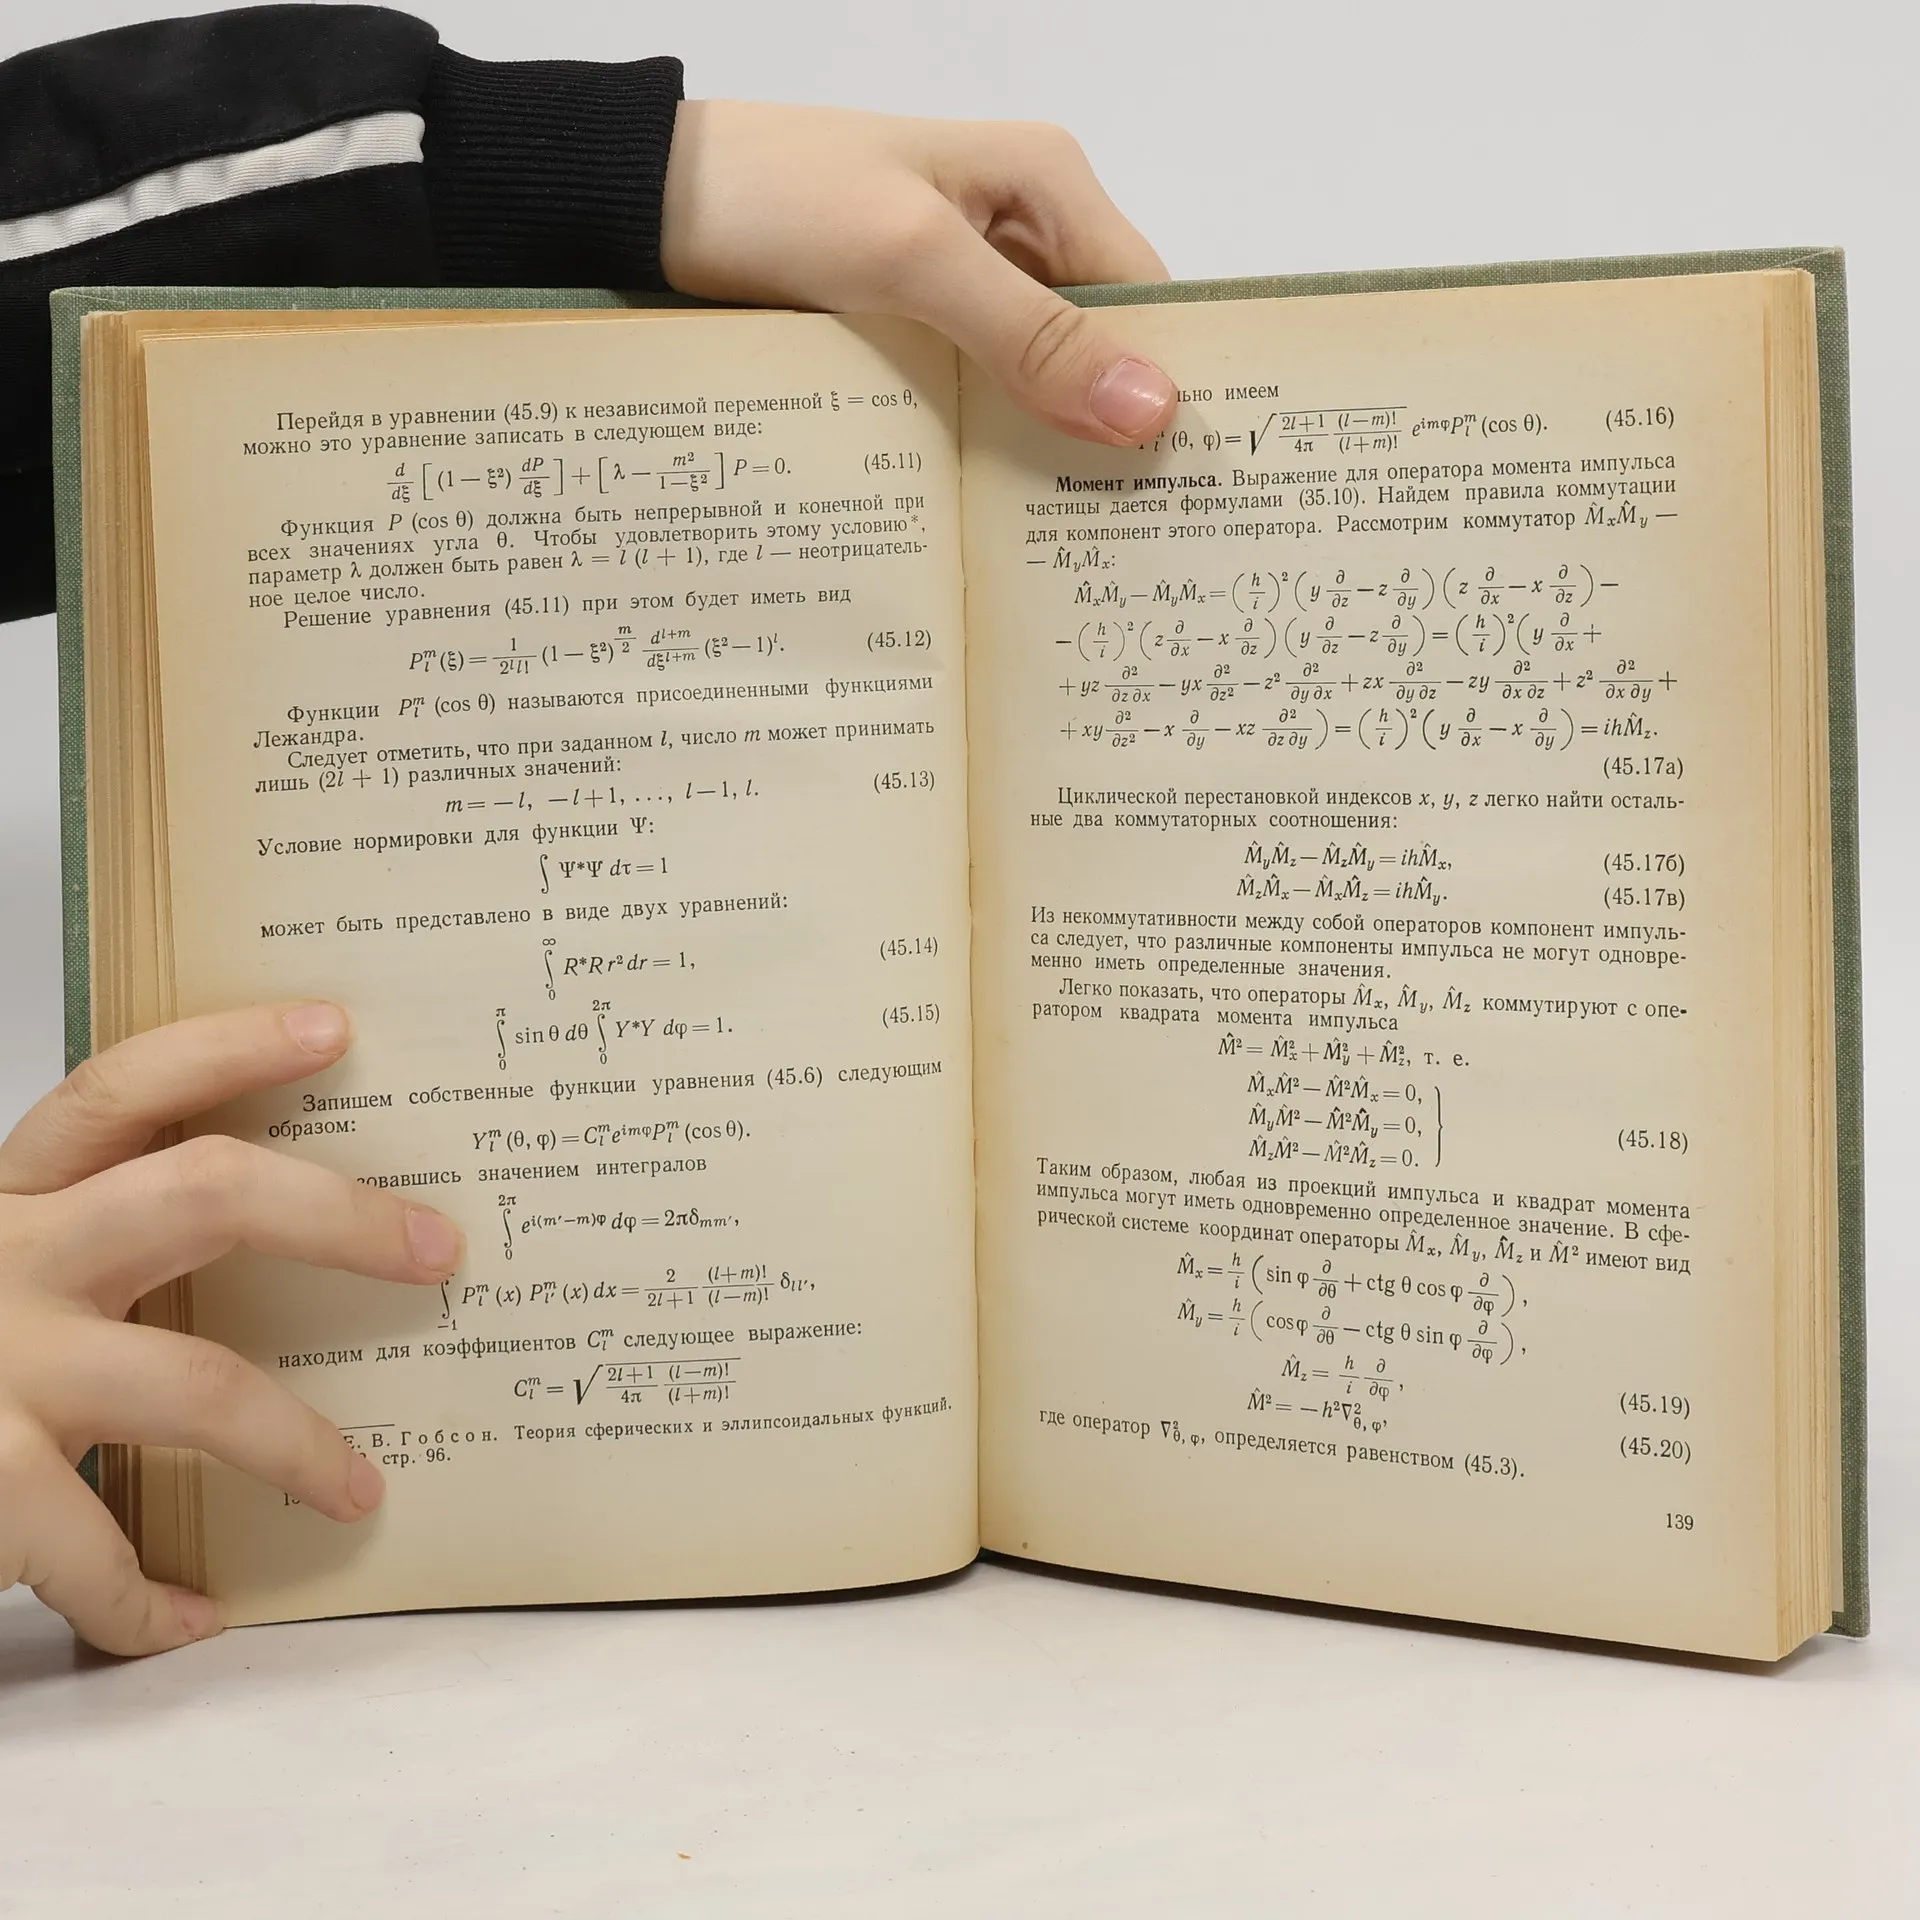 Перейдя в уравнении (45.9) к независимой переменной ξ = cos θ,
можно это уравнение записать в следующем виде:
d/dξ [(1 — ξ²) dP/dξ] + [λ — m²/(1—ξ²)] P = 0. (45.11)
Функция P (cos θ) должна быть непрерывной и конечной при
всех значениях угла θ. Чтобы удовлетворить этому условию*,
параметр λ должен быть равен λ = l (l + 1), где l — неотрицатель-
ное целое число.
Решение уравнения (45.11) при этом будет иметь вид
P_l^m (ξ) = 1/(2^l l!) (1 — ξ²)^(m/2) d^(l+m)/dξ^(l+m) (ξ² — 1)^l. (45.12)
Функции P_l^m (cos θ) называются присоединенными функциями
Лежандра.
Следует отметить, что при заданном l, число m может принимать
лишь (2l + 1) различных значений:
m = — l, — l + 1, ..., l — 1, l. (45.13)
Условие нормировки для функции Ψ:
∫ Ψ*Ψ dτ = 1
может быть представлено в виде двух уравнений:
∫_0^∞ R*R r² dr = 1, (45.14)
∫_0^π sin θ dθ ∫_0^2π Y*Y dφ = 1. (45.15)
Запишем собственные функции уравнения (45.6) следующим
образом:
Y_l^m (θ, φ) = C_l^m e^(imφ) P_l^m (cos θ).
значением интегралов
∫_0^2π e^(i(m′—m)φ) dφ = 2πδ_mm′,
∫_—1 P_l^m (x) P_l′^m (x) dx = 2/(2l+1) (l+m)!/(l—m)! δ_ll′,
находим для коэффициентов C_l^m следующее выражение:
C_l^m = √((2l+1)/4π (l—m)!/(l+m)!)
Е. В. Гобсон. Теория сферических и эллипсоидальных функций.
стр. 96.
имеем
(θ, φ) = √((2l+1)/4π (l—m)!/(l+m)!) e^(imφ) P_l^m (cos θ). (45.16)
Момент импульса. Выражение для оператора момента импульса
частицы дается формулами (35.10). Найдем правила коммутации
для компонент этого оператора. Рассмотрим коммутатор M̂_xM̂_y —
— M̂_yM̂_x:
M̂_xM̂_y — M̂_yM̂_x = (h/i)² (y ∂/∂z — z ∂/∂y) (z ∂/∂x — x ∂/∂z) —
— (h/i)² (z ∂/∂x — x ∂/∂z) (y ∂/∂z — z ∂/∂y) = (h/i)² (y ∂/∂x +
+ yz ∂²/∂z ∂x — yx ∂²/∂z² — z² ∂²/∂y ∂x + zx ∂²/∂y ∂z — zy ∂²/∂x ∂z + z² ∂²/∂x ∂y +
+ xy ∂²/∂z² — x ∂/∂y — xz ∂²/∂z ∂y) = (h/i)² (y ∂/∂x — x ∂/∂y) = ihM̂_z.
(45.17а)
Циклической перестановкой индексов x, y, z легко найти осталь-
ные два коммутаторных соотношения:
M̂_yM̂_z — M̂_zM̂_y = ihM̂_x, (45.17б)
M̂_zM̂_x — M̂_xM̂_z = ihM̂_y. (45.17в)
Из некоммутативности между собой операторов компонент импуль-
са следует, что различные компоненты импульса не могут одновре-
менно иметь определенные значения.
Легко показать, что операторы M̂_x, M̂_y, M̂_z коммутируют с опе-
ратором квадрата момента импульса
M̂² = M̂_x² + M̂_y² + M̂_z², т. е.
M̂_xM̂² — M̂²M̂_x = 0,
M̂_yM̂² — M̂²M̂_y = 0,
M̂_zM̂² — M̂²M̂_z = 0. } (45.18)
Таким образом, любая из проекций импульса и квадрат момента
импульса могут иметь одновременно определенное значение. В сфе-
рической системе координат операторы M̂_x, M̂_y, M̂_z и M̂² имеют вид
M̂_x = h/i (sin φ ∂/∂θ + ctg θ cos φ ∂/∂φ),
M̂_y = h/i (cosφ ∂/∂θ — ctg θ sin φ ∂/∂φ),
M̂_z = h/i ∂/∂φ, (45.19)
M̂² = — h²∇²_θ, φ, (45.20)
где оператор ∇²_θ, φ, определяется равенством (45.3).
139